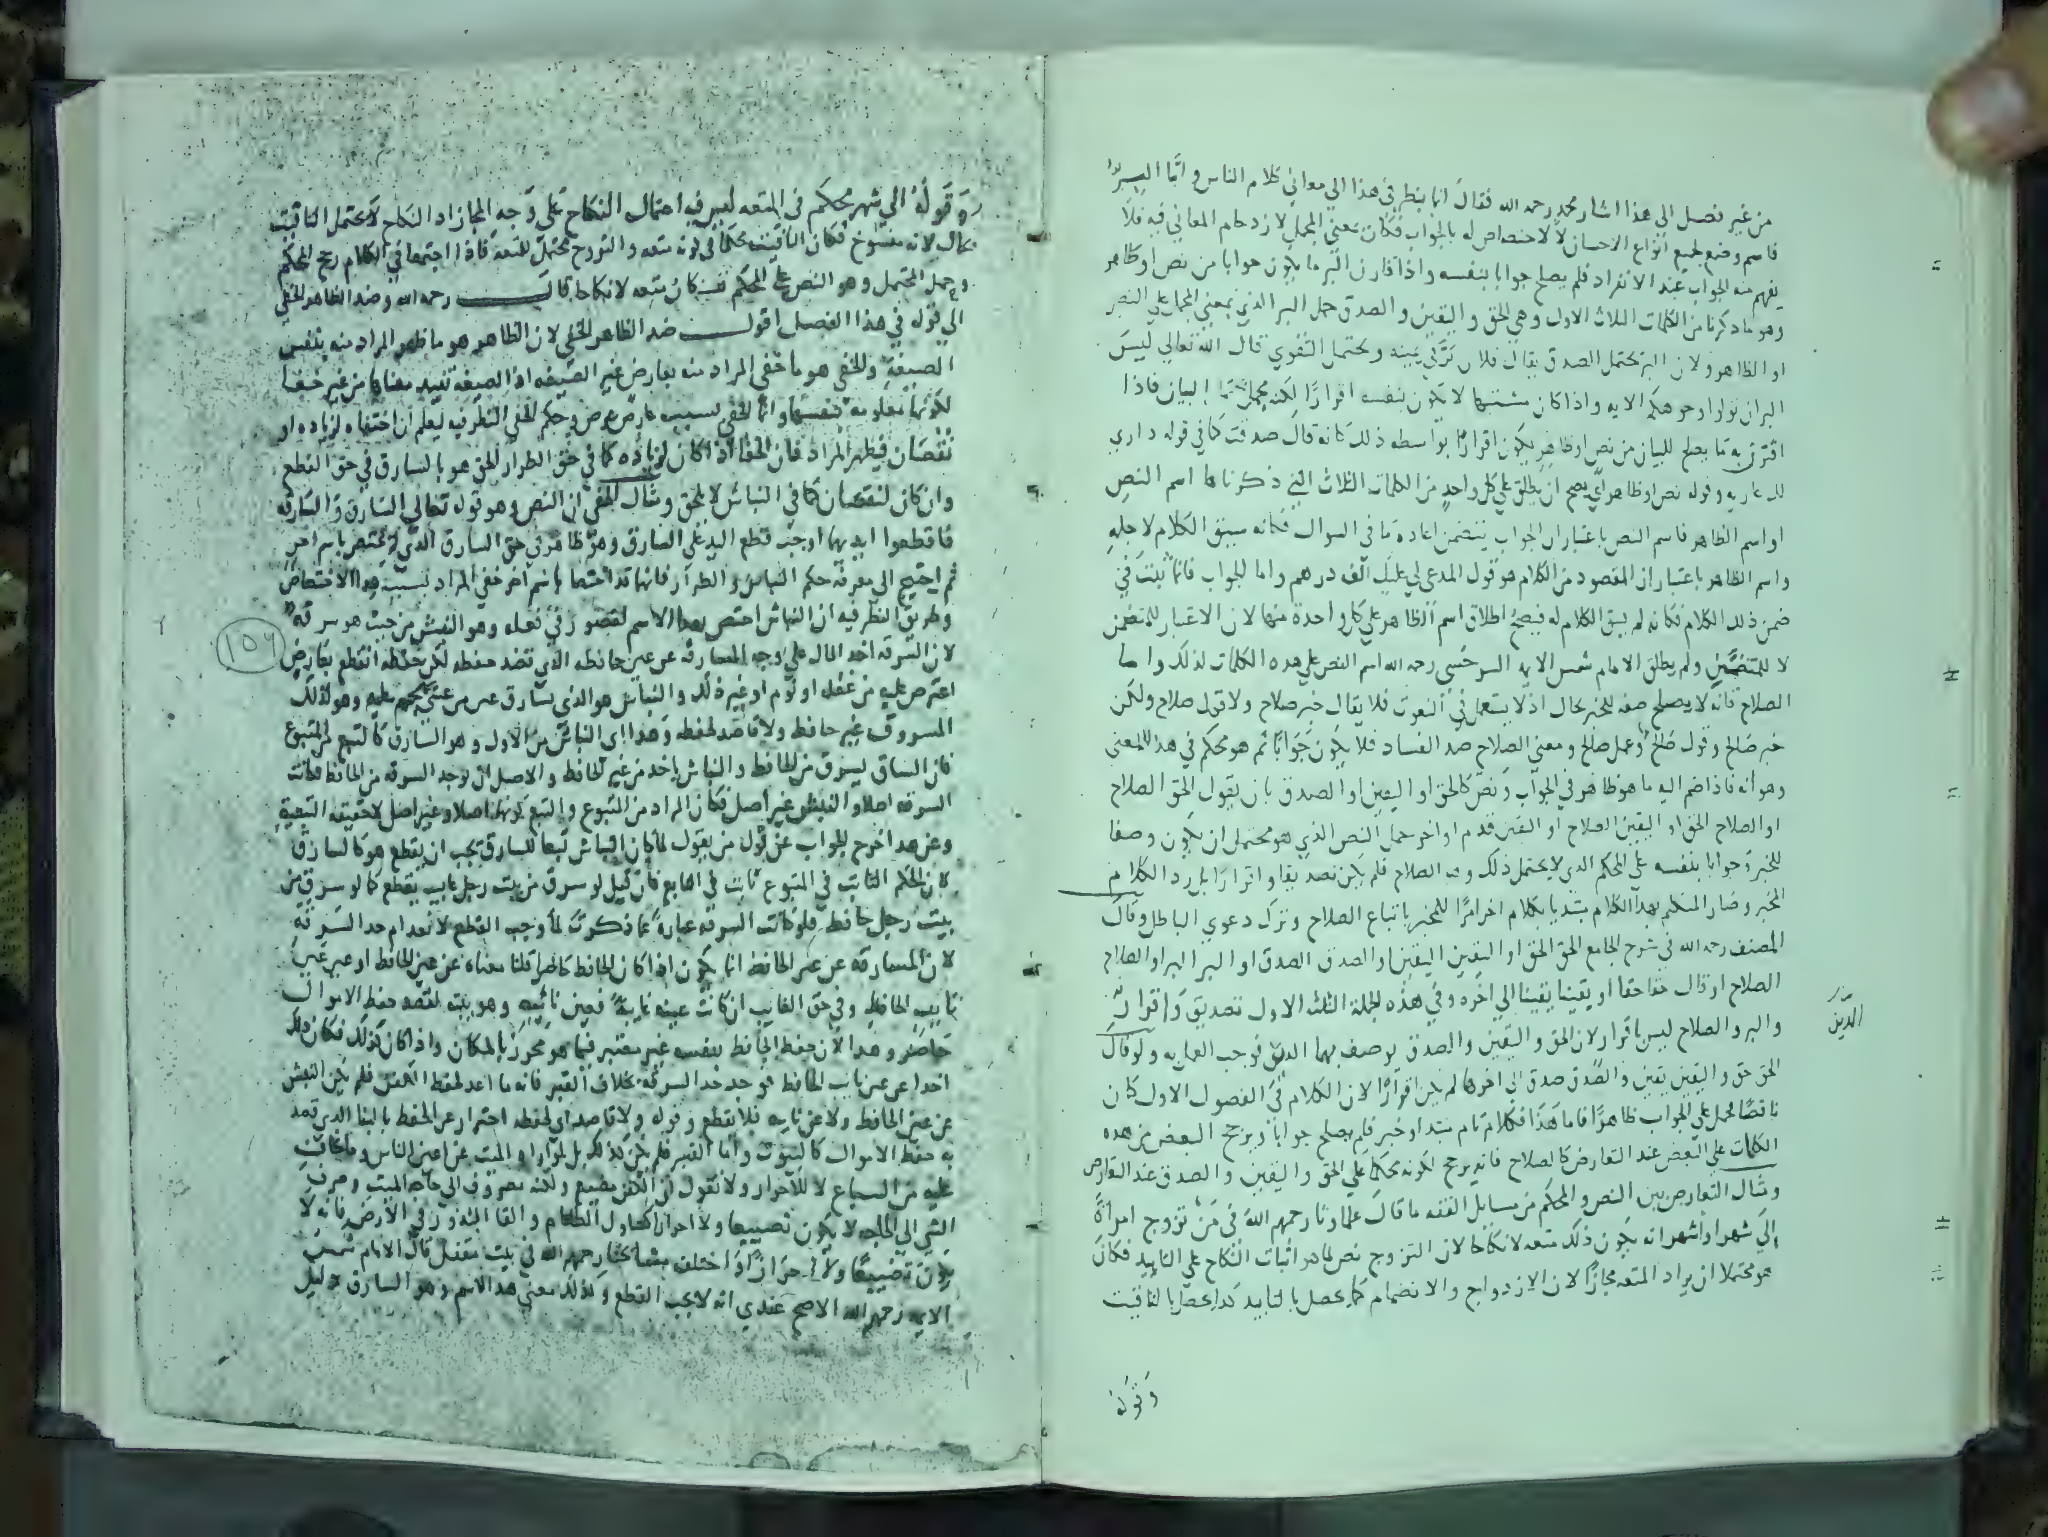 من غير فصل الى هذا اشار محمد رحمه الله فقال انما ينظر في هذا الى معاني كلام الناس واما البر
فاسم وضع لجميع انواع الاحسان لا اختصاص له بالجواب فكان بمعنى المجمل لازدحام المعاني فيه فلا
يفهم منه الجواب عند الانفراد فلم يصلح جوابا بنفسه واذا قارن البر ما يكون جوابا من نص او ظاهر
وهو ما ذكرنا من الكلمات الثلاث الاول وهي الحق واليقين والصدق حمل البر الذي بمعنى المجمل على النص
او الظاهر ولان البر يحتمل الصدق يقال فلان بر في يمينه ويحتمل التقوى قال الله تعالى ليس
البر ان تولوا وجوهكم الايه واذا كان مشتبها لا يكون بنفسه اقرارا لكنه البيان فاذا
اقترن به ما يصلح للبيان من نص او ظاهر يكون اقرارا بواسطه ذلك كانه قال صدقت كما في قوله داري
لك عاريه وقوله نص او ظاهر اي يصح ان يطلق على كل واحد من الكلمات الثلاث التي ذكرناها اسم النص
او اسم الظاهر فاسم النص باعتبار ان الجواب يتضمن اعادة ما في السوال فكانه سيق الكلام لاجله
واسم الظاهر باعتبار ان المقصود من الكلام هو قول المدعي لي عليك الف درهم واما الجواب فانما يثبت في
ضمن ذلك الكلام فكانه لم يسق الكلام له فيصح اطلاق اسم الظاهر على كل واحدة منها لان الاعتبار للمتضمن
لا للمتضمن ولم يطلق الامام شمس الايمه السرخسي رحمه الله اسم النص على هذه الكلمات لذلك واما
الصلاح فانه لا يصلح صفه للخبر بحال اذ لا يستعمل في النعوت فلا يقال خبر صلاح ولا قول صلاح ولكن
خبر صالح وقول صالح وعمل صالح ومعنى الصلاح ضد الفساد فلا يكون جوابا ثم هو محكم في هذا المعنى
وهو انه فاذا ضم اليه ما هو ظاهر في الجواب ونص كالحق او اليقين او الصدق بان يقول الحق الصلاح
او الصلاح الحق او اليقين الصلاح او اليقين قدم او اخر حمل النص الذي هو محتمل ان يكون وصفا
للخبر وجوابا بنفسه على المحكم الذي لا يحتمل ذلك وهو الصلاح فلم يكن تصديقا واقرارا بل رد الكلام
المخبر وصار المتكلم بهذا الكلام مبتديا بكلام اخر امرا للمخبر باتباع الصلاح وترك دعوى الباطل وقال
المصنف رحمه الله في شرح الجامع الحق الحق او اليقين اليقين او الصدق الصدق او البر البر او الصلاح
الصلاح او قال حقا حقا او يقينا يقينا الى اخره وفي هذه الجملة الثلث الاول تصديق واقرار
والبر والصلاح ليس باقرار لان الحق واليقين والصدق يوصف بهما الدين فوجب العمل به ولو قال
الحق حق واليقين يقين والصدق صدق الى اخرها لم يكن اقرارا لان الكلام في الفصول الاول كان
ناقصا فحمل على الجواب ظاهرا فاما هذا فكلام تام مبتدا وخبر فلم يصلح جوابا ويرجح البعض من هذه
الكلمات على البعض عند التعارض كالصلاح فانه يرجح لكونه محكما على الحق واليقين والصدق عند التعارض
ومثال التعارض بين النص والمحكم من مسايل الفقه ما قال علماونا رحمهم الله في من تزوج امراة
الى شهر او اشهر انه يكون ذلك متعه لا نكاحا لان التزوج نص لما هو اثبات النكاح على التابيد فكان
هو محتملا ان يراد المتعه مجازا لان الازدواج والانضمام كما يحصل بالتابيد كذا يحصل بالتاقيت
الدين
وقوله
وقوله الى شهر محكم في المتعه ليس فيه احتمال النكاح على وجه المجاز اذ النكاح لا يحتمل التاقيت
بحال لانه منسوخ فكان التاقيت محكما في كونه متعه والتزوج محتمل للمتعه فاذا اجتمعا في الكلام رجح المحكم
وحمل المحتمل وهو النص على المحكم فكان متعه لا نكاحا قال رحمه الله وضد الظاهر الخفي
الى قوله في هذا الفصل اقول ضد الظاهر الخفي لان الظاهر هو ما ظهر المراد منه بنفس
الصيغة والخفي هو ما خفي المراد منه بعارض غير الصيغه اذ الصيغه تفيد معناها من غير خفا
لكونها معلومه بنفسها وانما الخفي بسبب عارض عرض وحكم الخفي النظر فيه ليعلم ان اختفاه لزياده او
نقصان فيظهر المراد فان الخفا اذا كان لزياده كما في حق الطرار الحق هو بالسارق في حق القطع
وان كان لنقصان كما في النباش لا يلحق ومثال الخفي ان النص وهو قوله تعالى السارق والسارقه
فاقطعوا ايديهما اوجب قطع اليد على السارق وهو ظاهر في حق السارق الذي لم يختص باسم اخر
ثم احتيج الى معرفة حكم النباش والطرار فانهما قد اختصا باسم اخر خفي المراد بسبب هذا الاختصاص
وطريق النظر فيه ان النباش اختص بهذا الاسم لقصور في فعله وهو النبش من حيث هو سرقه
لان السرقه اخذ المال على وجه المسارقه عن عين حافظه الذي قصد حفظه لكن حفظه انقطع بعارض
اعترض عليه من غفله او نوم او غير ذلك والنباش هو الذي يسارق عين من عسى يهجم عليه وهو لذلك
المسروق غير حافظ ولا قاصد لحفظه وهذا اي النباش من الاول وهو السارق كالتبع للمتبوع
فان السارق يسرق من الحافظ والنباش ياخذ من غير الحافظ والاصل ان توجد السرقه من الحافظ فكانت
السرقه اصلا والنبش غير اصل فكان المراد من المتبوع والتبع كونهما اصلا وغير اصل لا حقيقه التبعية
وعن هذا اخرج الجواب عن قول من يقول لما كان النباش تبعا للسارق يجب ان يقطع هو كالسارق
لان الحكم الثابت في المتبوع ثابت في التابع فان قيل لو سرق من بيت رجل غايب يقطع كما لو سرق من
بيت رجل حافظ فلو كانت السرقه عبارة عما ذكرت لما وجب القطع لانعدام حد السرقه
لان المسارقه عن عين الحافظ انما يكون اذا كان الحافظ حاضرا قلنا معناه عن عين الحافظ او عين
نايب الحافظ وفي حق الغايب ان كانت عينه غايبة فعين نائبه وهو بيته لقصد حفظ الاموال
حاضر وهذا لان حفظ الحافظ بنفسه غير معتبر فيما هو محرز بالمكان واذا كان كذلك فكان ذلك
اخذا عن عين نايب الحافظ فوجد حد السرقه بخلاف القبر فانه ما اعد لحفظ الكفن فلم يكن النبش
عن عين الحافظ ولا عن نايبه فلا يقطع وقوله ولا قاصد اي لحفظه احتراز عن الحفظ بالبنا الذي قصد
به حفظ الاموال كالبيوت واما القبر فلم يكن كذلك بل لمواراة الميت عن اعين الناس وما يخاف
عليه من السباع لا للاحراز ولا نقول ان الكفن مضيع ولكنه مصروف الى حاجه الميت وصرف
الشي الى الحاجه لا يكون تضييعا ولا احرازا كتناول الطعام والقا البذور في الارض فانه لا
يكون تضييعا ولا احرازا اختلف مشائخنا رحمهم الله في بيت مقفل قال الامام شمس
الايمه رحمه الله الاصح عندي انه لا يجب القطع وكذلك معنى هذا الاسم وهو السارق دليل
١٥٦